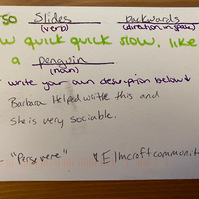 so Slides backwards
(verb) (direction in space)
w quick quick slow. like
a penguin
(noun)
write your own description below↓
Barbara Helped write this and
she is very sociable.
- "Persevere" "Elmcroft communit